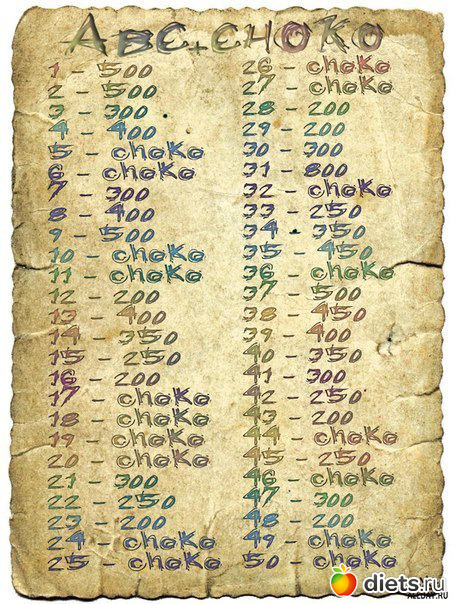 ABC+CHOKO
1 - 500
2 - 500
3 - 300
4 - 400
5 - choko
6 - choko
7 - 300
8 - 400
9 - 500
10 - choko
11 - choko
12 - 200
13 - 400
14 - 350
15 - 250
16 - 200
17 - choko
18 - choko
19 - choko
20 - choko
21 - 300
22 - 250
23 - 200
24 - choko
25 - choko
26 - choko
27 - choko
28 - 200
29 - 200
30 - 300
31 - 800
32 - choko
33 - 250
34 - 350
35 - 450
36 - choko
37 - 500
38 - 450
39 - 400
40 - 350
41 - 300
42 - 250
43 - 200
44 - choko
45 - 250
46 - choko
47 - 300
48 - 200
49 - choko
50 - choko
diets.ru
ALLDAY.RU